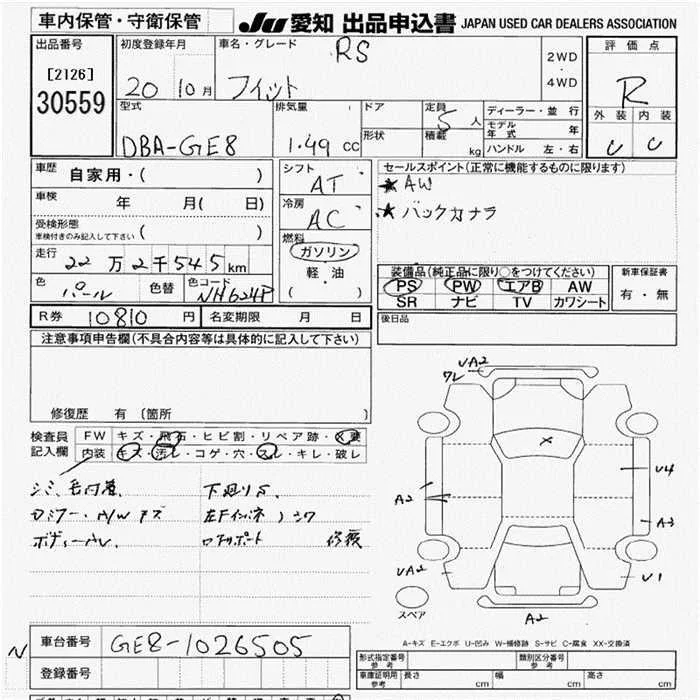 車内保管・守衛保管
JU 愛知 出品申込書 JAPAN USED CAR DEALERS ASSOCIATION
出品番号
[2126]
30559
初度登録年月
20 10月
車名・グレード
RS
フィット
2WD
・
4WD
評価点
R
外装 内装
C C
型式
DBA-GE8
排気量
1.49 cc
ドア
形状
定員
5人
積載
kg
ディーラー・並行
モデル年式 年
ハンドル 左・右
車歴
自家用・( )
車検
年 月( 日)
受検形態
車検付きのみ記入して下さい ( )
走行
22万2千545km
色
パール
色替
色コード
NH624P
シフト
AT
冷房
AC
燃料
ガソリン
軽・油
( )
セールスポイント(正常に機能するものに限ります)
★ AW
★ バックカメラ
装備品(純正品に限り○をつけてください)
PS PW エアB AW
SR ナビ TV カワシート
新車保証書
有・無
後日品
R券 10810 円 名変期限 月 日
注意事項申告欄(不具合内容等は具体的に記入して下さい)
修復歴 有 (箇所 )
検査員記入欄
FW キズ・飛石・ヒビ割・リペア跡・X要
内装 キズ・汚レ・コゲ・穴・スレ・キレ・破レ
下廻りS
ボディー
修復
UA2
ワレ
X
U4
A2
A3
UA2
U1
A2
スペア
A-キズ E-エクボ U-凹み W-補修跡 S-サビ C-腐食 XX-交換済
N
車台番号 GE8-1026505
登録番号
形式指定番号 参考
類別区分番号 参考
車庫証明用 参考 長さ cm 幅 cm 高さ cm